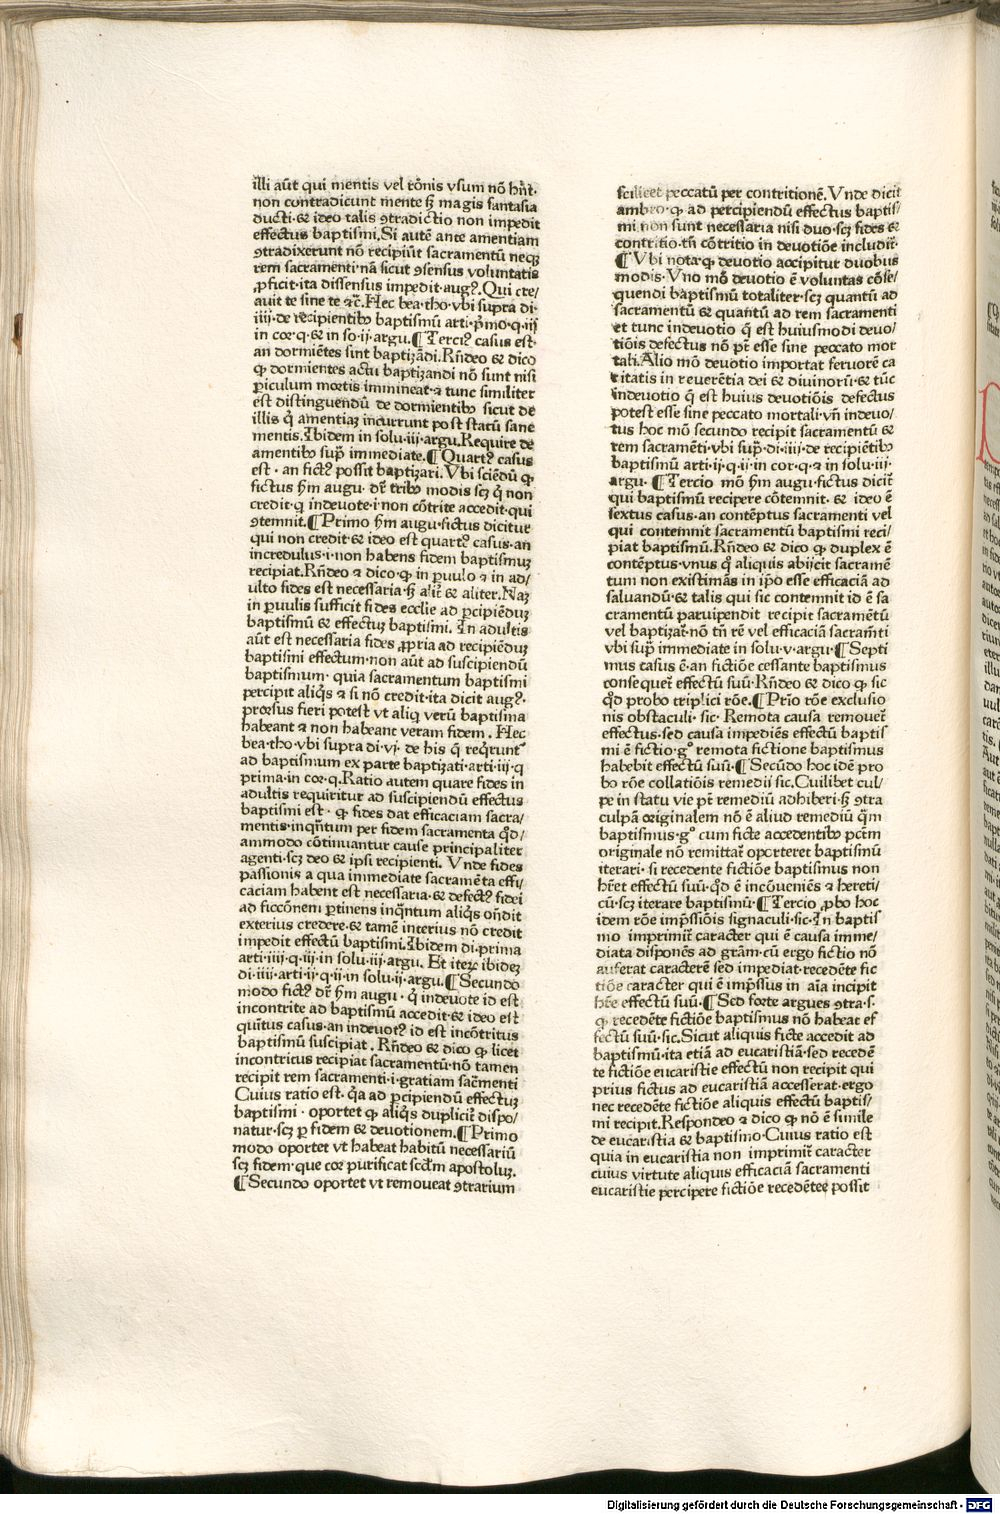 illi aūt qui mentis vel rōnis vsum nō hn̄t·
non contradicunt mente sꝫ magis fantasia
ducti·& ideo talis ꝯtradictio non impedit
effectus baptismi.Si autē ante amentiam
ꝯtradixerunt nō recipiūt sacramentū neqꝫ
rem sacramenti·nā sicut ꝯsensus voluntatis
ꝓficit·ita dissensus impedit·augꝰ.Qui cre/
auit te sine te ⁊c̄.Hec bea·tho·vbi supra di·
iiij·de recipientibꝰ baptismū arti·pͥmo·q·iij
in cor·q·& in so·ij·argu.¶Terciꝰ casus est·
an dormiētes sint baptizādi.Rn̄deo & dico
ꝙ dormientes actu baptizandi nō sunt nisi
ꝑiculum mortis immineat·⁊ tunc similiter
est distinguendū de dormientibꝰ sicut de
illis qͥ amentiaꝫ incurrunt post statū sane
mentis.Ibidem in solu·iij·argu.Require de
amentibꝰ supͣ immediate.¶Quartꝰ casus
est·an fictꝰ possit baptizari.Vbi sciēdū ꝙ
fictus ẜm augu·dr̄ tribꝰ modis scꝫ qͥ non
credit·qͥ indeuote·i·non cōtrite accedit·qui
ꝯtemnit.¶Primo ẜm augu·fictus dicitur
qui non credit·& ideo est quartꝰ casus·an
incredulus·i·non habens fidem baptismuꝫ
recipiat.Rn̄deo ⁊ dico·ꝙ in ꝑuulo ⁊ in ad/
ulto fides est necessaria·sꝫ alit̄ & aliter.Naꝫ
in ꝑuulis sufficit fides ecclie ad ꝑcipiēduꝫ
baptismū & effectuꝫ baptismi. In adultis
aūt est necessaria fides ꝓpria ad recipiēduꝫ
baptismi effectum·non aūt ad suscipiendū
baptismum·quia sacramentum baptismi
percipit aliqͥs ⁊ si nō credit·ita dicit augꝰ.
prorsus fieri potest vt aliqͥ verū baptisma
habeant ⁊ non habeant veram fidem. Hec
bea·tho·vbi supra di·vj·de his qͥ reqͥrunt᷑
ad baptismum ex parte baptizati·arti·iij·q
prima·in cor·q.Ratio autem quare fides in
adultis requiritur ad suscipiendū effectus
baptismi est·qꝫ fides dat efficaciam sacra/
mentis·inqͣntum per fidem sacramenta qͦd/
ammodo cōtinuantur cause principaliter
agenti·scꝫ deo & ipsi recipienti. Vnde fides
passionis a qua immediate sacramēta effi/
caciam habent est necessaria·& defectꝰ fidei
ad ficcōnem ꝑtinens inqͣntum aliqͥs on̄dit
exterius credere·& tamē interius nō credit
impedit effectū baptismi.Ibidem di·prima
arti·iiij·q·iij·in solu·iij·argu. Et iterꝫ ibideꝫ
di·iiij·arti·ij·q·ij·in solu·ij·argu.¶Secundo
modo fictꝰ dr̄ ẜm augu·qͥ indeuote id est
incontrite ad baptismū accedit·& ideo est
quītus casus·an indeuotꝰ id est incōtritus
baptismū suscipiat. Rn̄deo & dico ꝙ licet
incontricus recipiat sacramentū·nō tamen
recipit rem sacramenti·i·gratiam sac̄menti
Cuius ratio est·qꝫ ad ꝑcipiendū effectuꝫ
baptismi·oportet ꝙ aliqͥs duplicit̄ dispo/
natur·scꝫ ꝑ fidem & deuotionem.¶Primo
modo oportet vt habeat habitū necessariū
scꝫ fidem·que cor purificat scd̄m apostoluꝫ.
¶Secundo oportet vt remoueat ꝯtrarium
scilicet peccatū per contritionē.Vnde dicit
ambro·ꝙ ad percipiendū effectus baptis/
mi non sunt necessaria nisi duo·scꝫ fides &
contritio·tn̄ cōtritio in deuotiōe includit᷑·
¶Vbi nota·ꝙ deuotio accipitur duobus
modis·Vno mō deuotio ē voluntas cōse/
quendi baptismū totaliter·scꝫ quantū ad
sacramentū & quantū ad rem sacramenti
et tunc indeuotio qͥ est huiusmodi deuo/
tiōis defectus nō pt̄ esse sine peccato mor
tali.Alio mō deuotio importat feruorē ca
ritatis in reuerētia dei & diuinorū·& tūc
indeuotio qͥ est huius deuotiōis defectus
potest esse sine peccato mortali·vn̄ indeuo/
tus hoc mō secundo recipit sacramentū &
rem sacramēti·vbi supͣ·di·iiij·de recipiētibꝰ
baptismū arti·ij·q·ij·in cor·q·⁊ in solu·iij·
argu· ¶Tercio mō ẜm augu·fictus dicit᷑
qui baptismū recipere cōtemnit· & ideo ē
sextus casus·an contēptus sacramenti vel
qui contemnit sacramentū baptismi reci/
piat baptismū.Rn̄deo & dico ꝙ duplex ē
contēptus·vnus qͦ aliquis abijcit sacramē
tum non existimās in ip̄o esse efficaciā ad
saluandū·& talis qui sic contemnit id ē sa
cramentū paruipendit recipit sacramētū
vel baptizat᷑·nō tn̄ rē vel efficaciā sacram̄ti
vbi supͣ immediate in solu·v·argu·¶Septi
mus casus ē·an fictiōe cessante baptismus
consequet᷑ effectū suū·Rn̄deo & dico ꝙ sic
qͦd probo triplici rōe.¶Prīo rōe exclusio
nis obstaculi·sic·Remota causa remouet᷑
effectus·sed causa impediēs effectū baptis
mi ē fictio·gͦ remota fictione baptismus
habebit effectū suū·¶Secūdo hoc idē pro
bo rōe collatiōis remedii sic.Cuilibet cul/
pe in statu vie pt̄ remediū adhiberi·sꝫ ꝯtra
culpā originalem nō ē aliud remediū qͣm
baptismus·gͦ cum ficte accedentibꝰ pctm̄
originale nō remittat᷑ oporteret baptismū
iterari·si recedente fictiōe baptismus non
hr̄et effectū suū·qͦd ē incōueniēs ⁊ hereti/
cū·scꝫ iterare baptismū·¶Tercio ꝓbo hoc
idem rōe imp̄ssiōis signaculi·sic·In baptis
mo imprimit᷑ caracter qui ē causa imme/
diata disponēs ad grām·cū ergo fictio nō
auferat caracterē sed impediat·recedēte fic
tiōe caracter qui ē imp̄ssus in aīa incipit
hr̄e effectū suū·¶Sed forte argues ꝯtra·s·
ꝙ recedēte fictiōe baptismus nō habeat ef
fectū suū·sic.Sicut aliquis ficte accedit ad
baptismū·ita etiā ad eucaristiā·sed recedē
te fictiōe eucaristie effectū non recipit qui
prius fictus ad eucaristiā accesserat·ergo
nec recedēte fictiōe aliquis effectū baptis/
mi recipit.Respondeo ⁊ dico ꝙ nō ē simile
de eucaristia & baptismo·Cuius ratio est
quia in eucaristia non imprimit᷑ caracter
cuius virtute aliquis efficaciā sacramenti
eucaristie percipere fictiōe recedēte possit
Digitalisierung gefördert durch die Deutsche Forschungsgemeinschaft - DFG